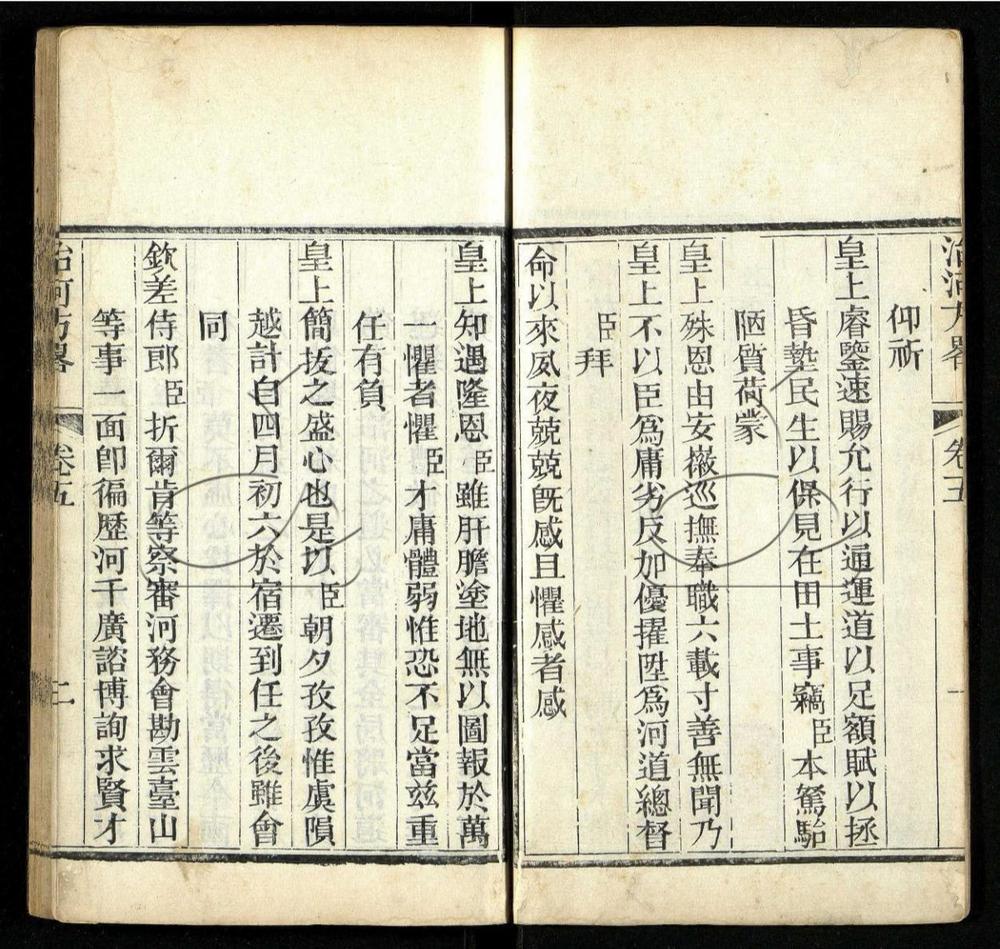 治河方畧 卷五 一
仰祈
皇上睿鑒速賜允行以通運道以足額賦以拯
昏墊民生以保見在田土事竊臣本駑駘
陋質荷蒙
皇上殊恩由安徽巡撫奉職六載寸善無聞乃
皇上不以臣爲庸劣反加優擢陞爲河道總督
臣拜
命以來夙夜兢兢旣感且懼感者感
皇上知遇隆恩臣雖肝膽塗地無以圖報於萬
一懼者懼臣才庸體弱惟恐不足當兹重
任有負
皇上簡拔之盛心也是以臣朝夕孜孜惟虞隕
越計自四月初六於宿遷到任之後雖會
同
欽差侍郎臣折爾肯等察審河務會勘雲臺山
等事一面卽徧歷河干廣諮博詢求賢才
治河方畧 卷五 二